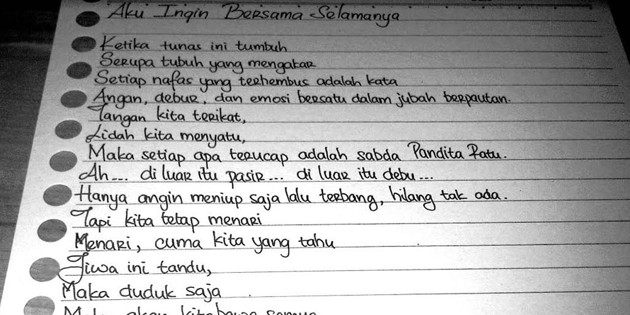 Aku Ingin Bersama Selamanya
Ketika tunas ini tumbuh
Serupa tubuh yang mengakar
Setiap nafas yang terhembus adalah kata
Angan, debur, dan emosi bersatu dalam jubah berpautan.
Tangan kita terikat,
Lidah kita menyatu,
Maka setiap apa terucap adalah sabda Pandita Ratu.
Ah... di luar itu pasir... di luar itu debu...
Hanya angin meniup saja lalu terbang, hilang tak ada.
Tapi kita tetap menari
Menari, cuma kita yang tahu
Jiwa ini tandu,
Maka duduk saja
Maka akan kita bawa semua